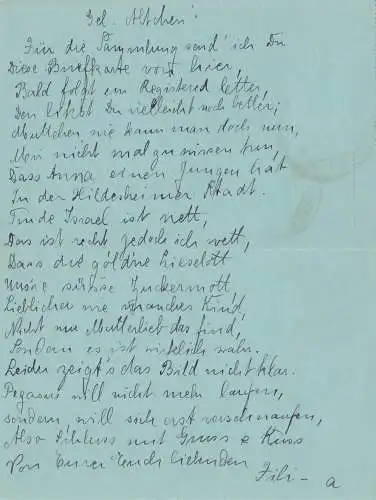 Gel. Altchen!
Für die Sammlung send' ich Dir
Diese Briefkarte von hier,
Bald folgt ein Registered letter,
Den liebst Du vielleicht noch better;
Muttchen wie kann man doch nun,
Man nicht mal zu wissen tun,
Dass Anna einen Jungen hat
In der Hildesheimer Stadt.
Finde Israel ist nett,
Das ist recht jedoch ich wett,
Dass die gold'ne Lieselott
Unsre süsse Zuckermott
Lieblicher wie manches Kind,
Nicht nur Mutterlieb das find,
Sondern es ist wirklich wahr.
Leider zeigt's das Bild nicht klar.
Pegasus will nicht mehr laufen,
sondern will sich erst verschnaufen,
Also Schluss mit Gruss & Kuss
Von Eurer Euch liebenden
Fili - a